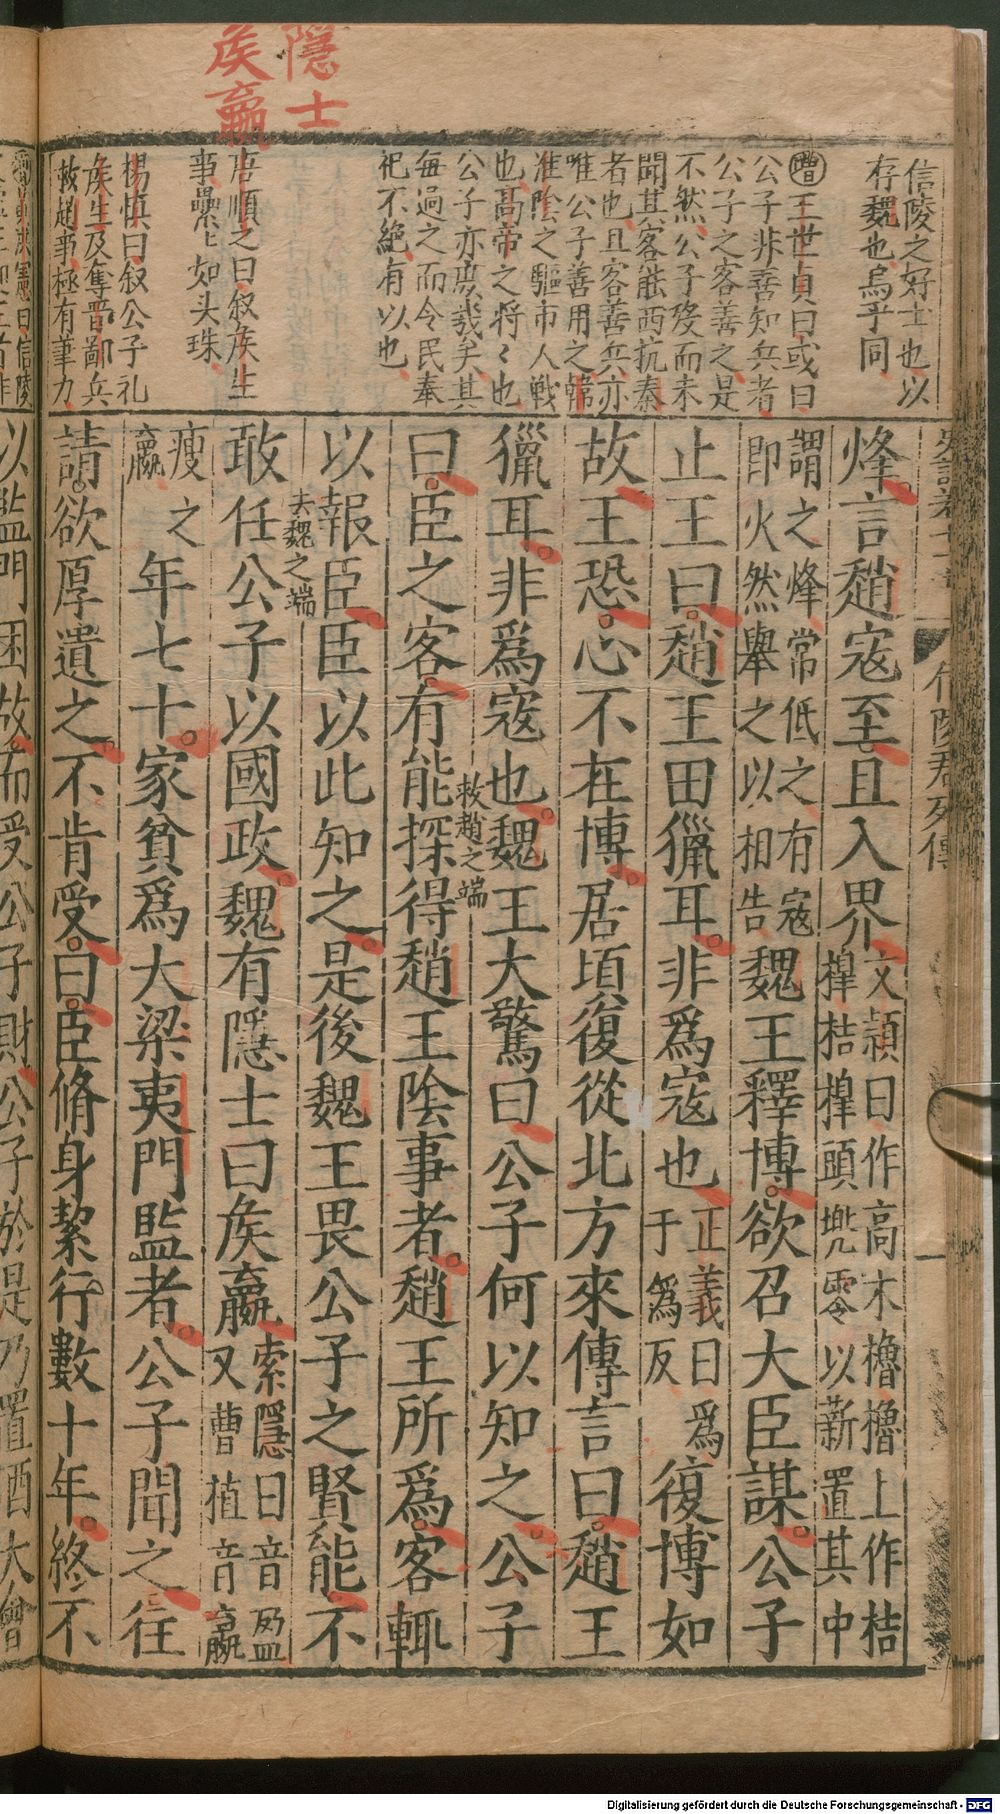 隠士
矦嬴
信陵之好士也以
存魏也烏乎同
增王世貞曰或曰
公子非善知兵者
公子之客善之是
不然公子歿而未
聞其客能西抗秦
者也且客善兵亦
唯公子善用之韓
淮陰之驅市人戦
也高帝之将〻也
公子亦庻㡬矣其
每過之而令民奉
祀不絶有以也
唐順之曰叙矦生
事纍〻如头珠
楊慎曰叙公子礼
矦生及奪晋鄙兵
救趙事極有筆力
信陵君列傳
烽言趙寇至且入界文穎曰作高木櫓櫓上作桔
橰桔橰頭兠零以薪置其中
謂之烽常低之有寇
即火然舉之以相告魏王釋博欲召大臣謀公子
止王曰趙王田獵耳非爲寇也正義曰爲
于爲反復博如
故王恐心不在博居頃復從北方來傳言曰趙王
獵耳非爲寇也魏王大驚曰公子何以知之公子
救趙之端
曰臣之客有能探得趙王陰事者趙王所爲客輒
以報臣臣以此知之是後魏王畏公子之賢能不
去魏之端
敢任公子以國政魏有隱士曰矦嬴索隱曰音盈
又曹植音嬴
瘦
嬴之年七十家貧爲大梁夷門監者公子聞之往
請欲厚遺之不肯受曰臣脩身絜行數十年終不
以監門困故而受公子財公子於是乃置酒大會
Digitalisierung gefördert durch die Deutsche Forschungsgemeinschaft - DFG